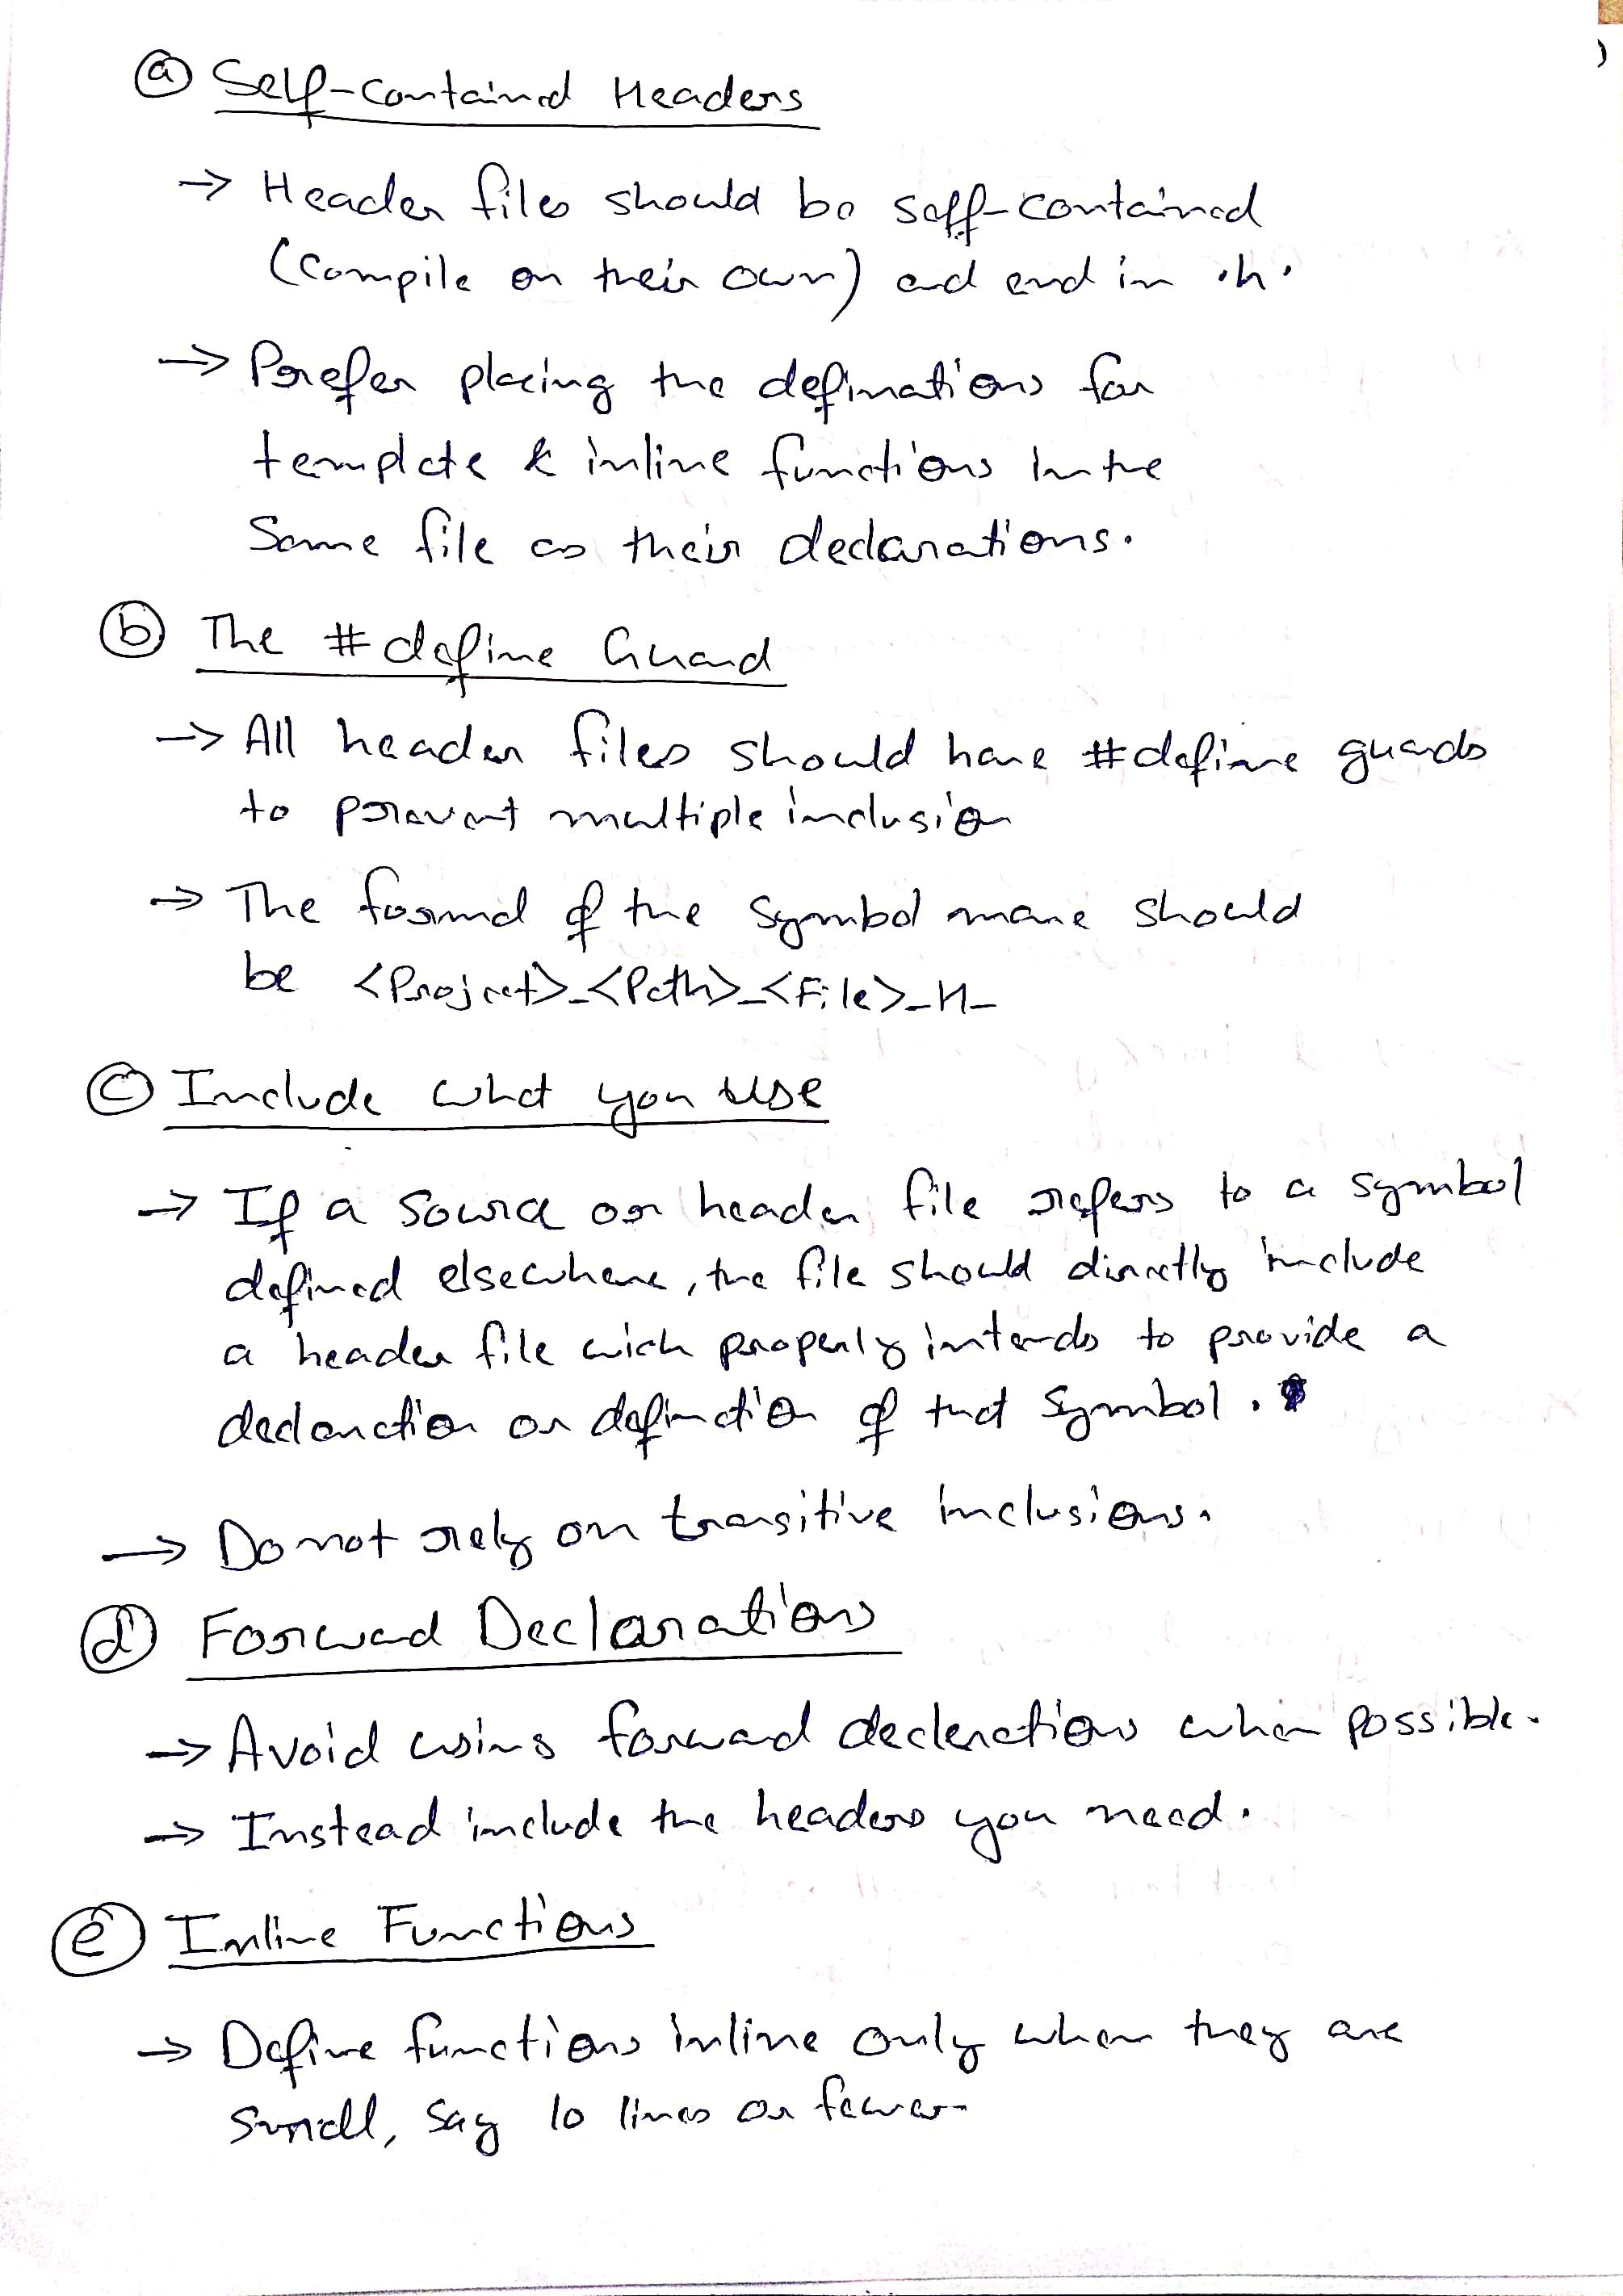 ⓐ Self-contained Headers
→ Header files should be self-contained
(compile on their own) and end in .h.
→ Prefer placing the definations for
template & inline functions in the
Same file as their declarations.
ⓑ The #define Guard
→ All header files should have #define guards
to prevent multiple inclusion
→ The format of the symbol name should
be <Project>_<Path>_<File>_H_
ⓒ Include what you use
→ If a source or header file refers to a symbol
defined elsewhere, the file should directly include
a header file wich properly intends to provide a
declaration or definition of that symbol.
→ Do not rely on transitive inclusions.
ⓓ Forward Declarations
→ Avoid using forward declarations when possible.
→ Instead include the headers you need.
ⓔ Inline Functions
→ Define functions inline only when they are
small, say 10 lines or fewer